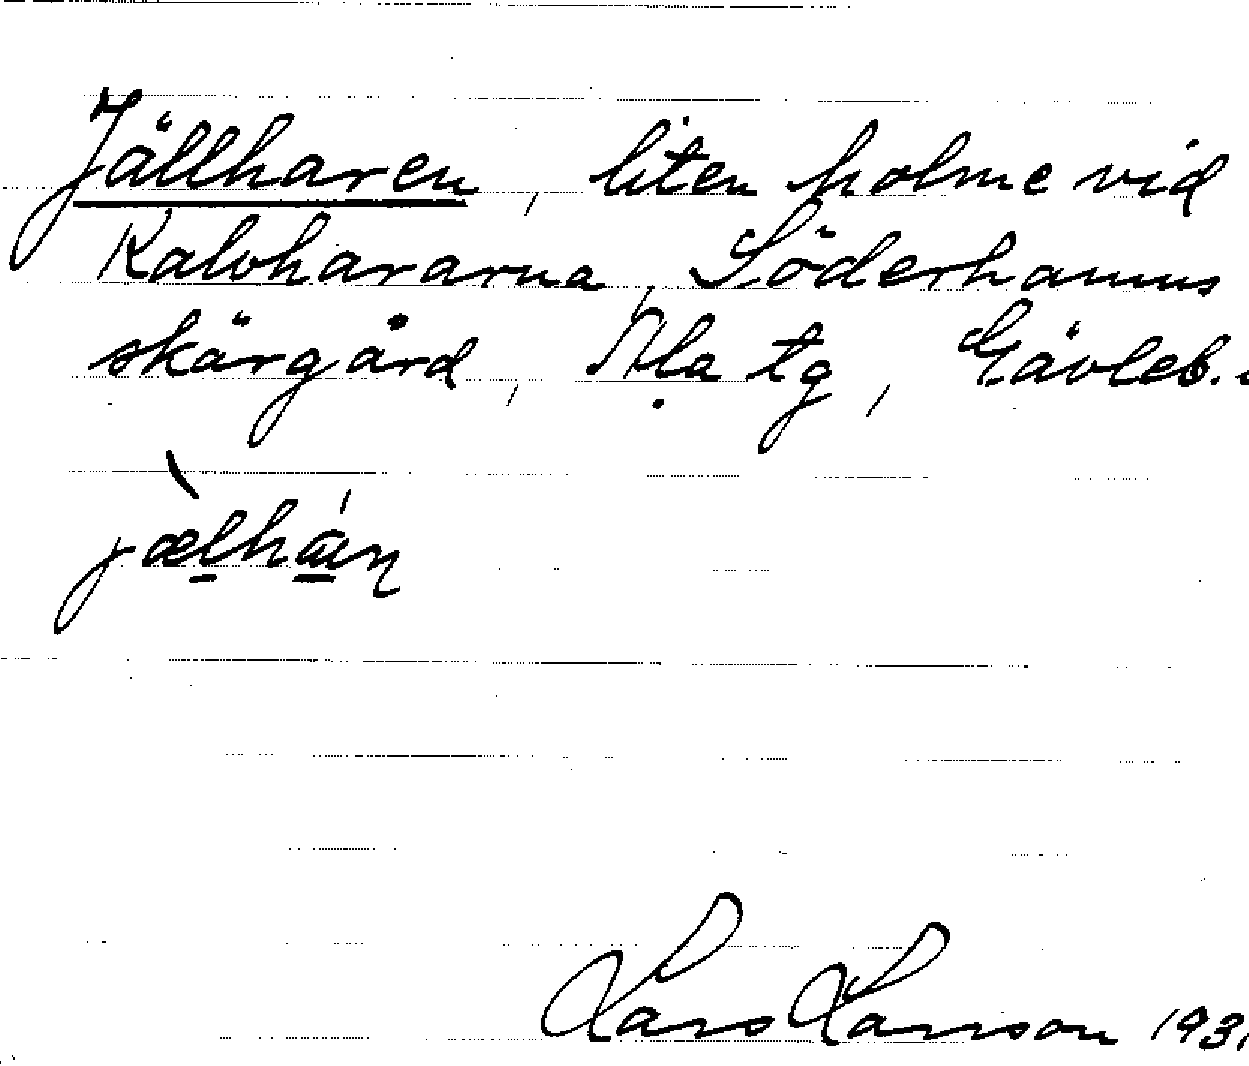 Jällharen, liten holme vid
Kalvhararna, Söderhamns
skärgård, Ala tg, Gävleb.
Lars Larsson 193